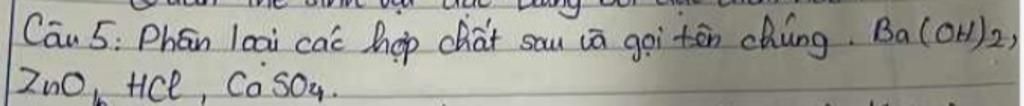 Câu 5: Phân loại các hợp chất sau và gọi tên chúng. Ba(OH)2,
ZnO, HCl, CaSO4.